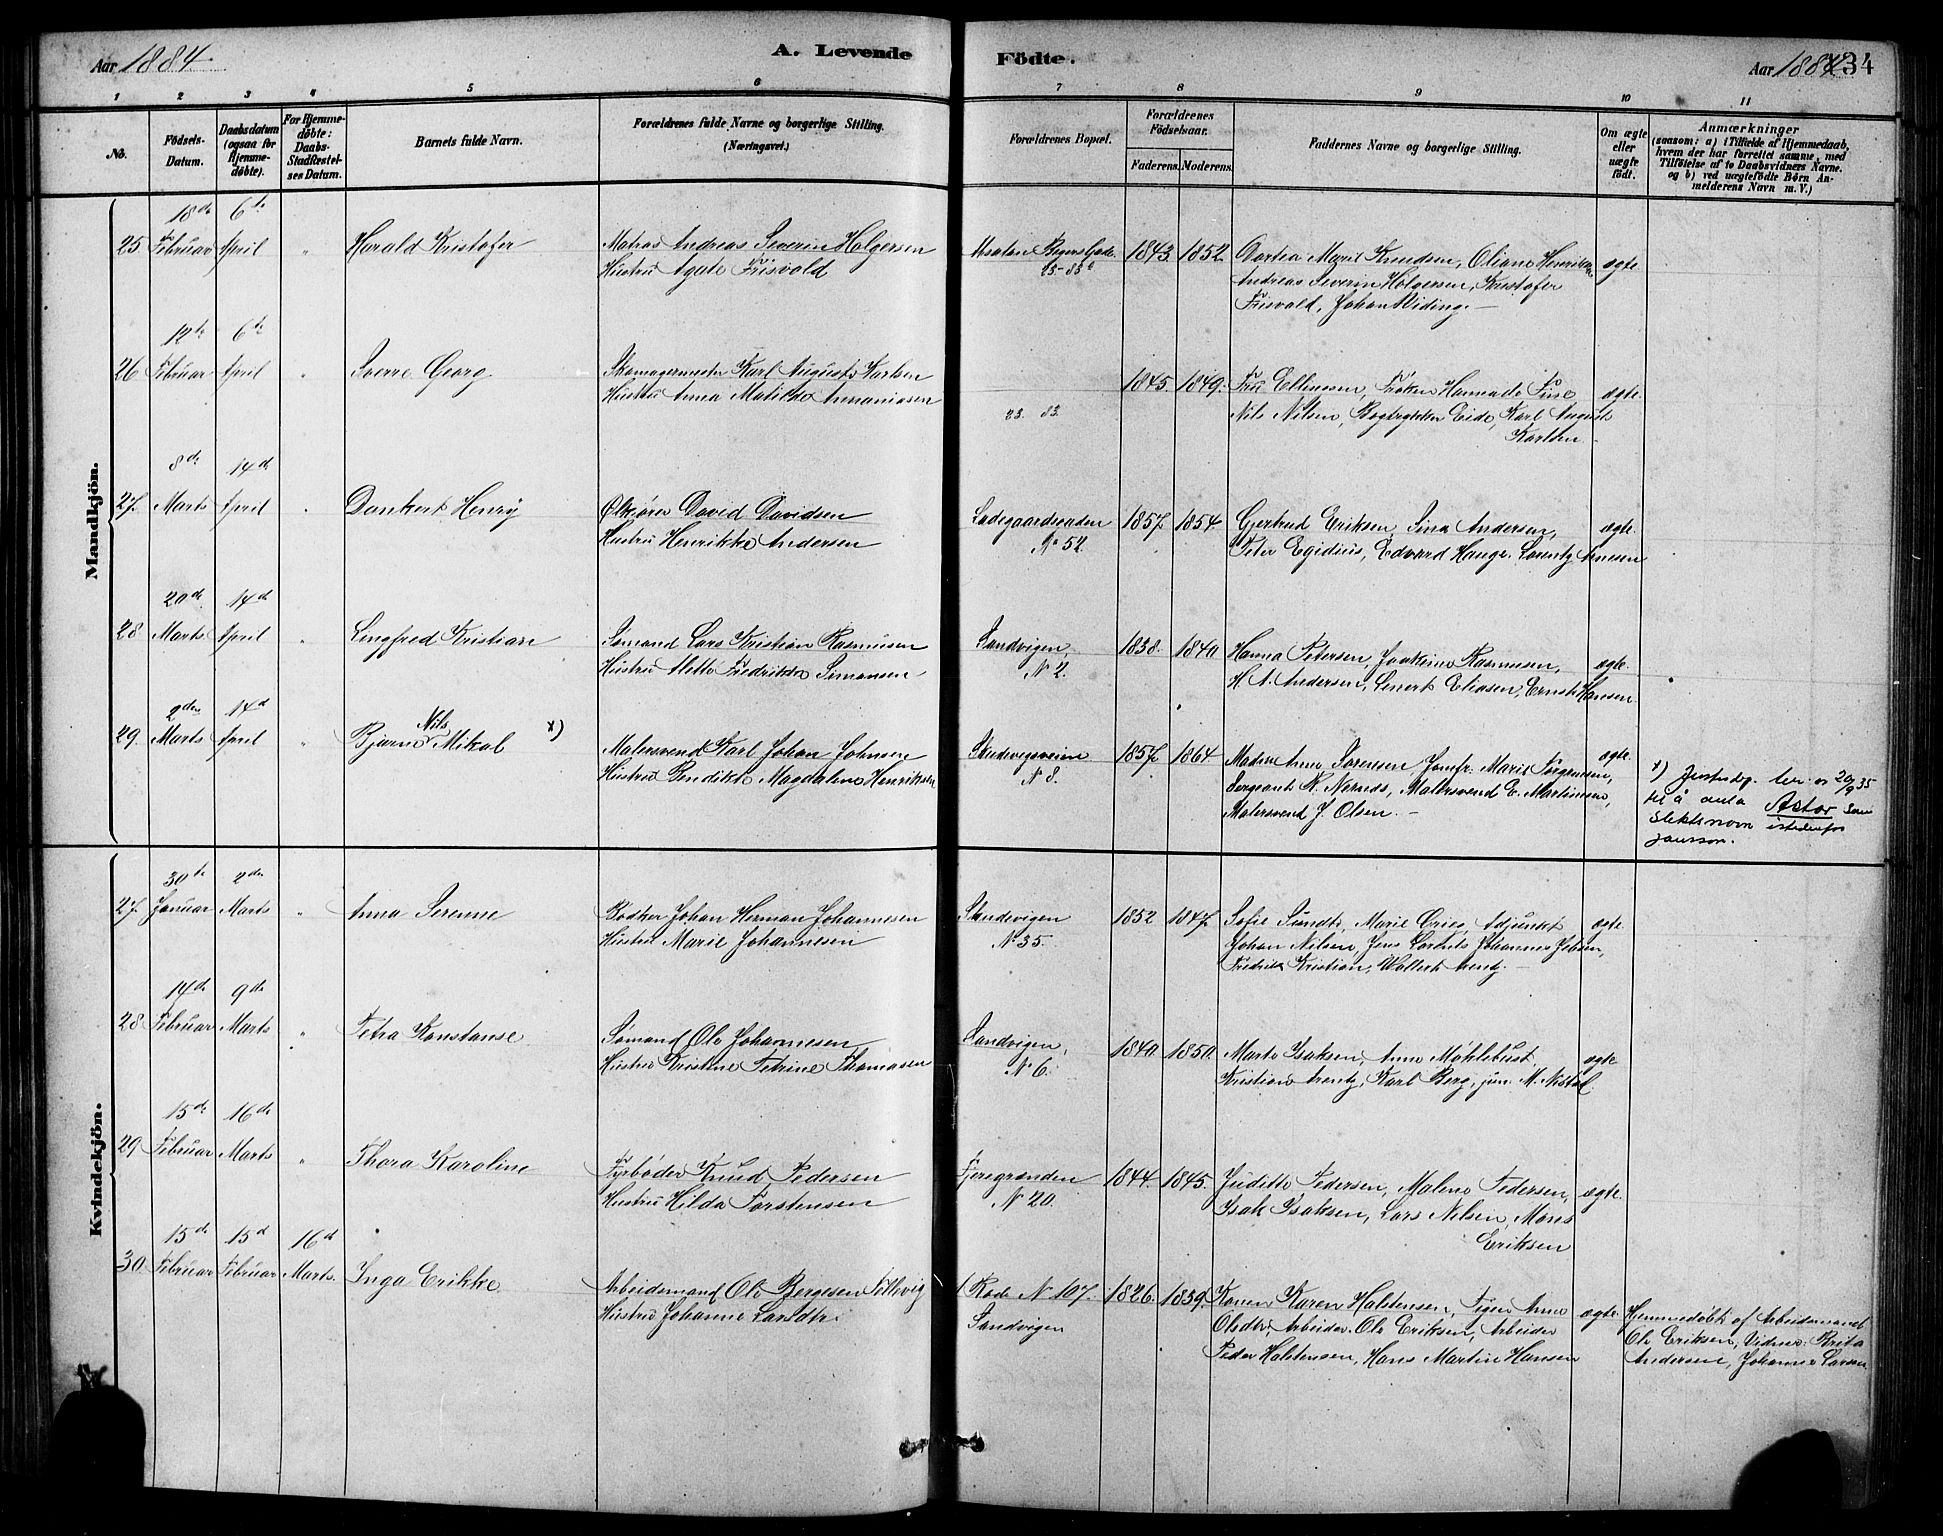 Aar 1884.
A. Levende Födte.
Aar 1884.
134
1 2 3 4 5 6 7 8 9 10 11
No.
Födsels-Datum.
Daabsdatum (ogsaa for Hjemme-døbte).
For Hjemme-døbte: Daabs-Stadfæstel-ses Datum.
Barnets fulde Navn.
Forældrenes fulde Navne og borgerlige Stilling.
(Næringsvei.)
Forældrenes Bopæl.
Forældrenes Födselsaar.
Faderens. Moderens.
Faddernes Navne og borgerlige Stilling.
Om ægte eller uægte født.
Anmærkninger
(saasom: a) i Tilfælde af Hjemmedaab,
hvem der har forrettet samme, med
Tilföielse af to Daabsvidners Navne.
og b) ved uægtefödte Börn An-
melderens Navn m. V.)
Mandkjön.
18de 6te
25 Februar April " Harald Kristofer
Matros Andreas Severin Holgersen
Hustru Agate Frisvold
23-83
1843. 1852.
Dortea Marie Knudsen, Oliane Henriksen
Andreas Severin Holgersen, Kristofer
Frisvold, Johan Widing.
ægte.
12te 6te
26 Februar April " Sverre Georg
Skomagermester Karl August Karlsen
Hustru Anna Matilda Annaniasen
23. 83.
1845. 1849.
Fru Ellingsen, Frøken Hanna de Fine
Nils Nilsen, Bogtrykker Eide, Karl August
Karlsen
ægte.
8de 14d
27. Marts April " Dankert Henry
Ølkjører David Davidsen
Hustru Henrikke Andersen
Ladegaardsgaden
No 52.
1857. 1854
Gjertrud Eriksen, Sina Andersen,
Peter Egidius, Edvard Hauge. Lorentz Arnesen
ægte.
20de 14d
28 Marts April " Lingfred Kristian
Sømand Lars Kristian Rasmusen
Hustru Mette Fredrikke Simonsen
Sandvigen
No 2.
1838. 1840
Hanna Petersen, Joakime Rasmusen,
H. A. Andersen, Lenert Eliasen, Ernst Hansen
ægte.
2den 14d
29. Marts April " Bjarne Nils Mikal x)
Malersvend Karl Johan Johnsen
Hustru Bendikte Magdalene Henriksen
Skudevigsveien
No 8.
1857. 1864
Madm Anna Sørensen, Jomfr. Marie Jørgensen,
Sergeant K. Nernes, Malersvend E. Martinsen,
Malersvend J. Olsen.
ægte.
x) Justisdp. bev. av 20/9 35
til å anta Astor som
slektsnavn istedenfor
Jansson.
Kvindekjön.
30te 2den
27. Januar Marts " Anna Serenne
Bødker Johan Herman Johannesen
Hustru Marie Johannesen
Skudevigen
No 35.
1852 1847.
Sofie Sundt, Marie Gries, Adjunkt
Johan Nilsen, Jens Lorents Johannes Jebsen,
Fredrik Kristian, Wollert Arentz.
ægte
14de 9de
28 Februar Marts " Petra Konstanse
Sømand Ole Johannesen
Hustru Kristine Petrine Thomasen
Sandvigen,
No 6.
1840. 1850.
Marta Isaksen, Anna Møhlebust,
Kristian Arentz, Karl Berg, jun. M. Nistal.
ægte
15de 16de
29 Februar Marts " Thora Karoline
Fyrbøder Knud Pedersen
Hustru Hilda Torstensen
Fjeregranden
No 20.
1844. 1845.
Judithe Pedersen, Malene Pedersen,
Isak Isaksen, Lars Nilsen, Mons
Eriksen
ægte.
15de 15d 16d
30 Februar Februar Marts. Inga Erikke
Arbeidsmand Ole Bergesen Follevig
Hustru Johanne Larsdtr.
Rode No 107.
Sandvigen
1826. 1839.
Konen Karen Halstensen, Pigen Anna
Olsdtr, Arbeider Ole Eriksen, Arbeider
Peder Halstensen, Hans Martin Hansen
ægte.
Hjemmedøbt af Arbeidsmand
Ole Eriksen, Vidner: Brita
Andersen, Johanne Larsen